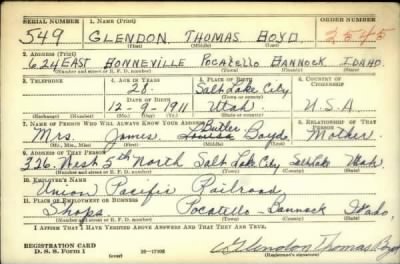 SERIAL NUMBER 1. NAME (Print) ORDER NUMBER
549 GLENDON THOMAS BOYD 2545
(First) (Middle) (Last)
2. ADDRESS (Print)
624 EAST BONNEVILLE POCATELLO BANNOCK IDAHO
(Number and street or R. F. D. number) (Town) (County) (State)
3. TELEPHONE 4. AGE IN YEARS 5. PLACE OF BIRTH 6. COUNTRY OF CITIZENSHIP
28 Salt Lake City
DATE OF BIRTH (Town or county)
12-9-1911 Utah U.S.A
(Exchange) (Number) (Mo.) (Day) (Yr.) (State or country)
7. NAME OF PERSON WHO WILL ALWAYS KNOW YOUR ADDRESS 8. RELATIONSHIP OF THAT PERSON
Butler
Mrs. James Louisa Boyd Mother
(Mr., Mrs., Miss) (First) (Middle) (Last)
9. ADDRESS OF THAT PERSON
326 West 5th North Salt Lake City Salt Lake Utah
(Number and street or R. F. D. number) (Town) (County) (State)
10. EMPLOYER'S NAME
Union Pacific Railroad
11. PLACE OF EMPLOYMENT OR BUSINESS
Shops Pocatello - Bannock Idaho
(Number and street or R. F. D. number) (Town) (County) (State)
I AFFIRM THAT I HAVE VERIFIED ABOVE ANSWERS AND THAT THEY ARE TRUE.
REGISTRATION CARD
D. S. S. Form 1 (over) Glendon Thomas Boyd
(Registrant's signature)